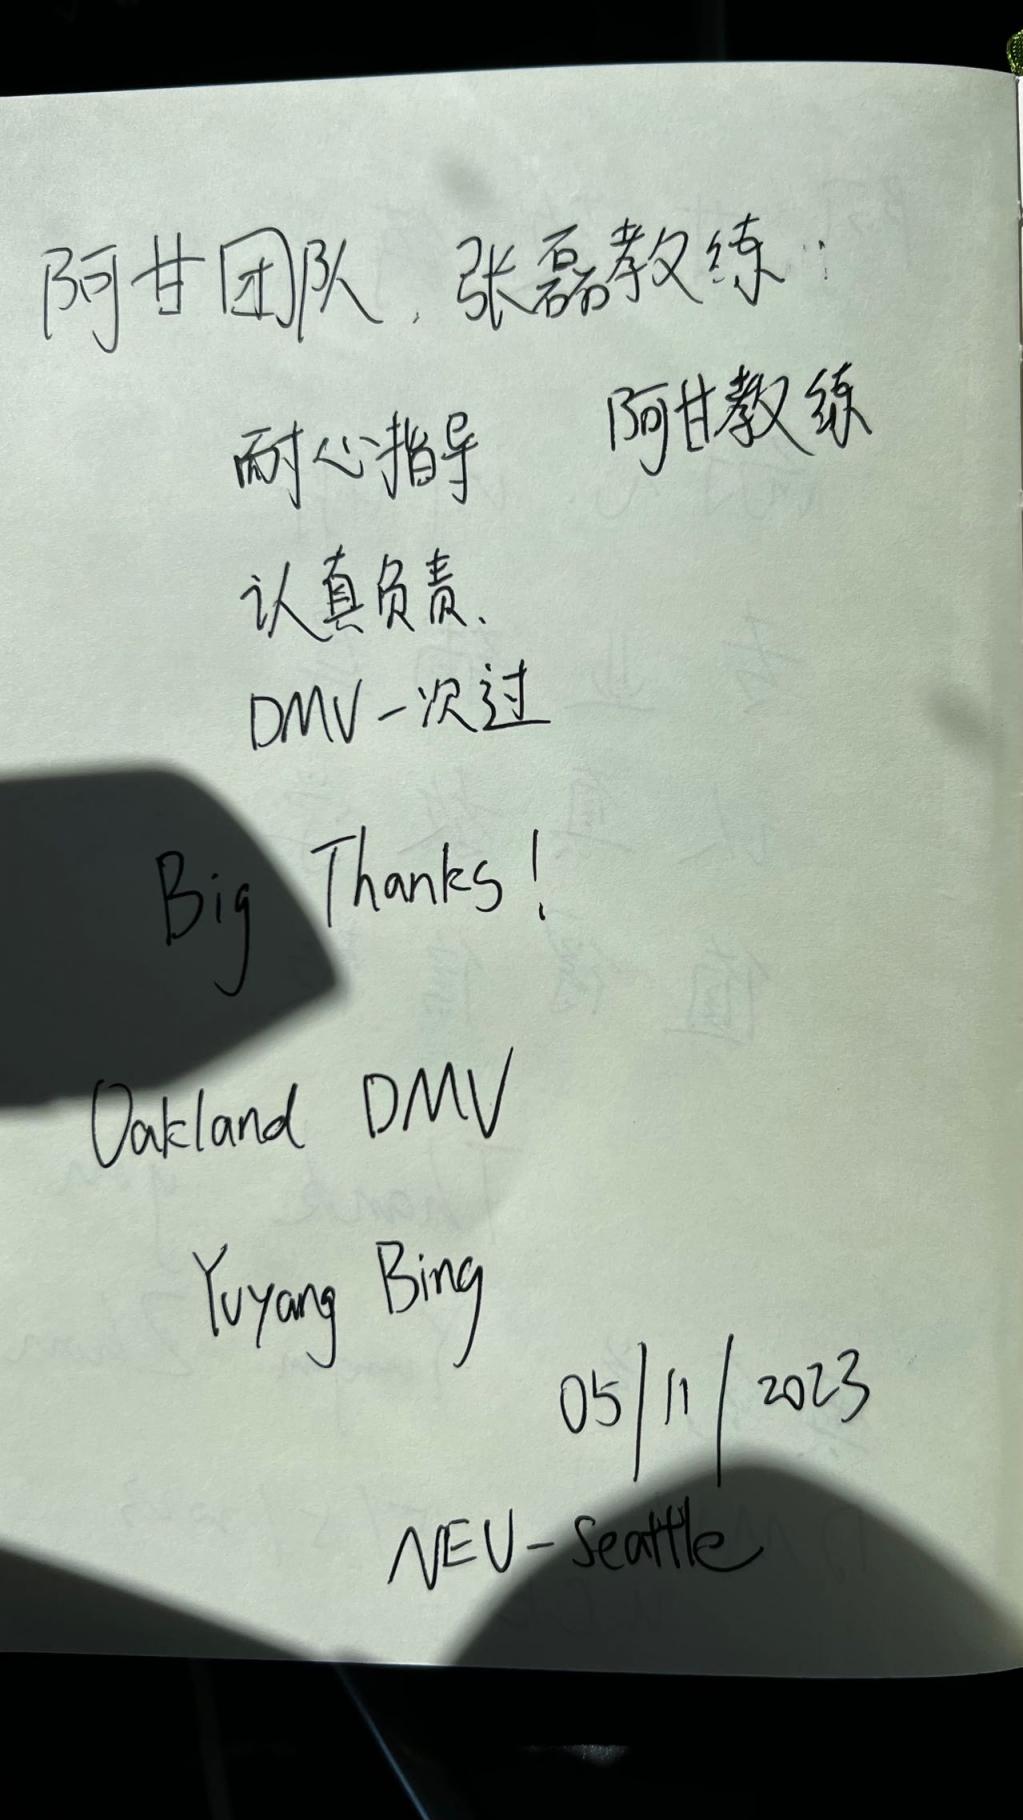 阿甘团队, 张磊教练:
阿甘教练
耐心指导
认真负责、
DMV一次过
Big Thanks!
Oakland DMV
Yuyang Bing
05/11/2023
NEU-Seattle